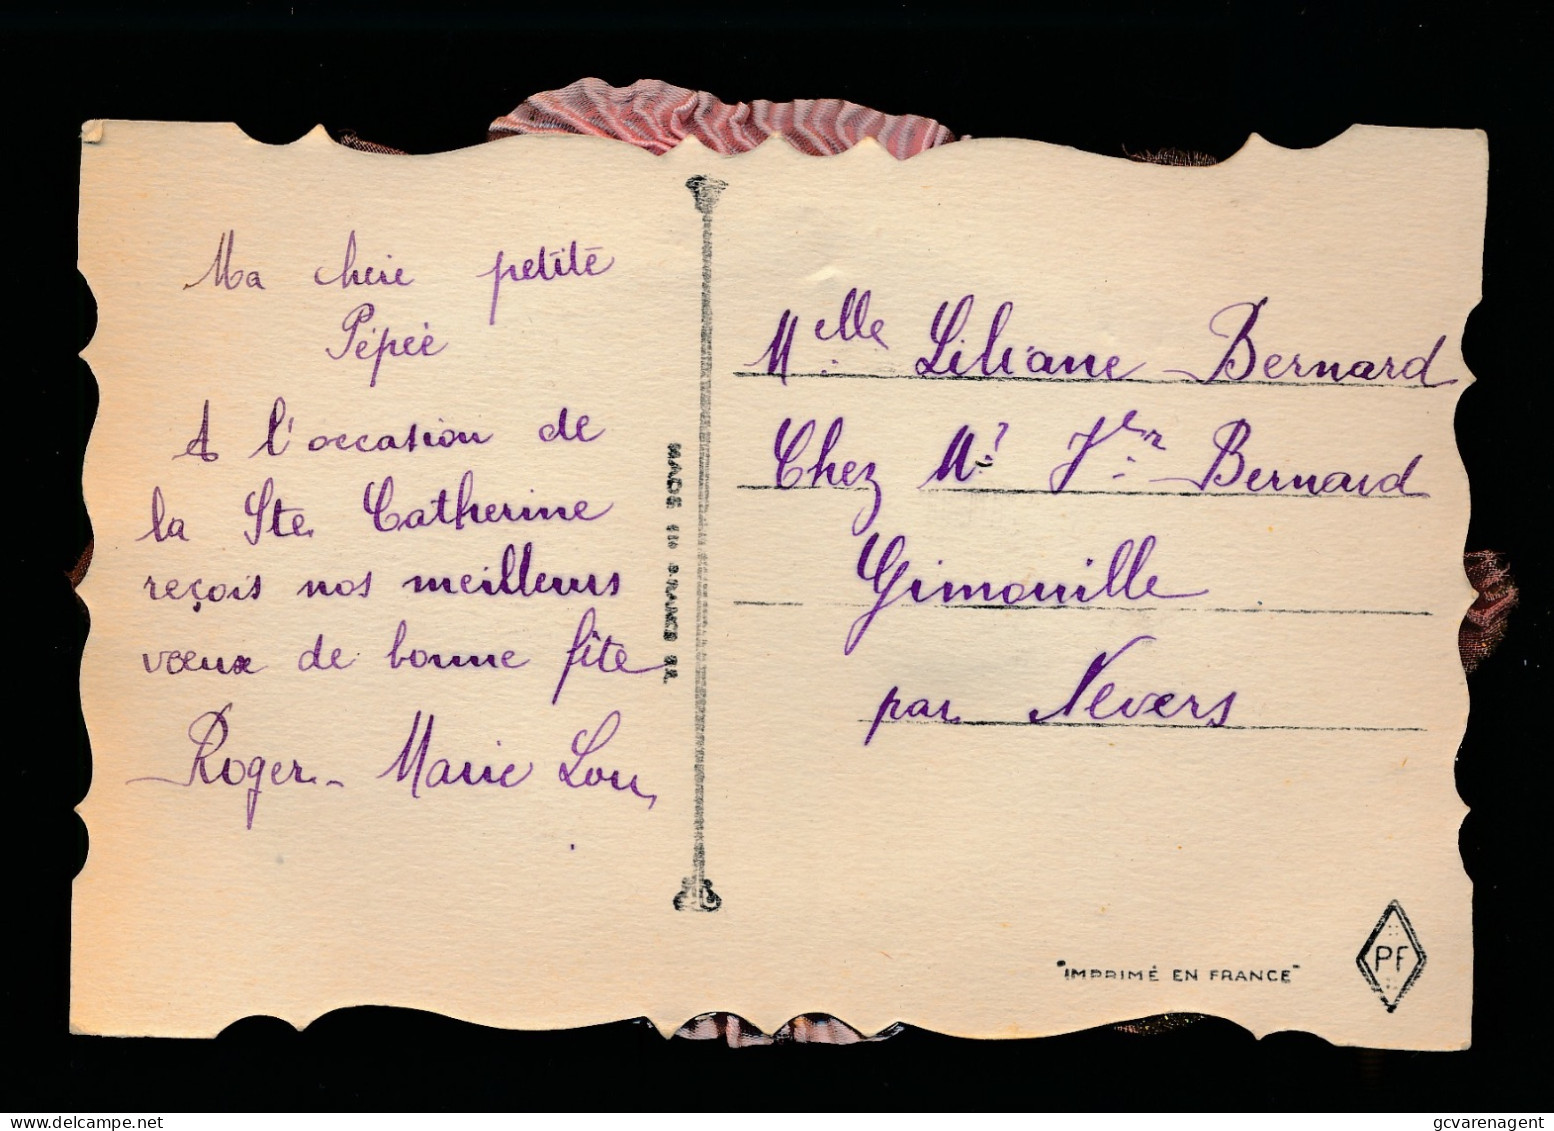 Ma cherie petite
Pépée
A l'occasion de
la Ste Catherine
reçois nos meilleurs
vœux de bonne fête
Roger - Marie Lou
MADE IN FRANCE
Mlle Liliane Bernard
Chez Mr Bernard
Gimouille
par Nevers
"IMPRIMÉ EN FRANCE"
PF
www.delcampe.net
gcvarenagent